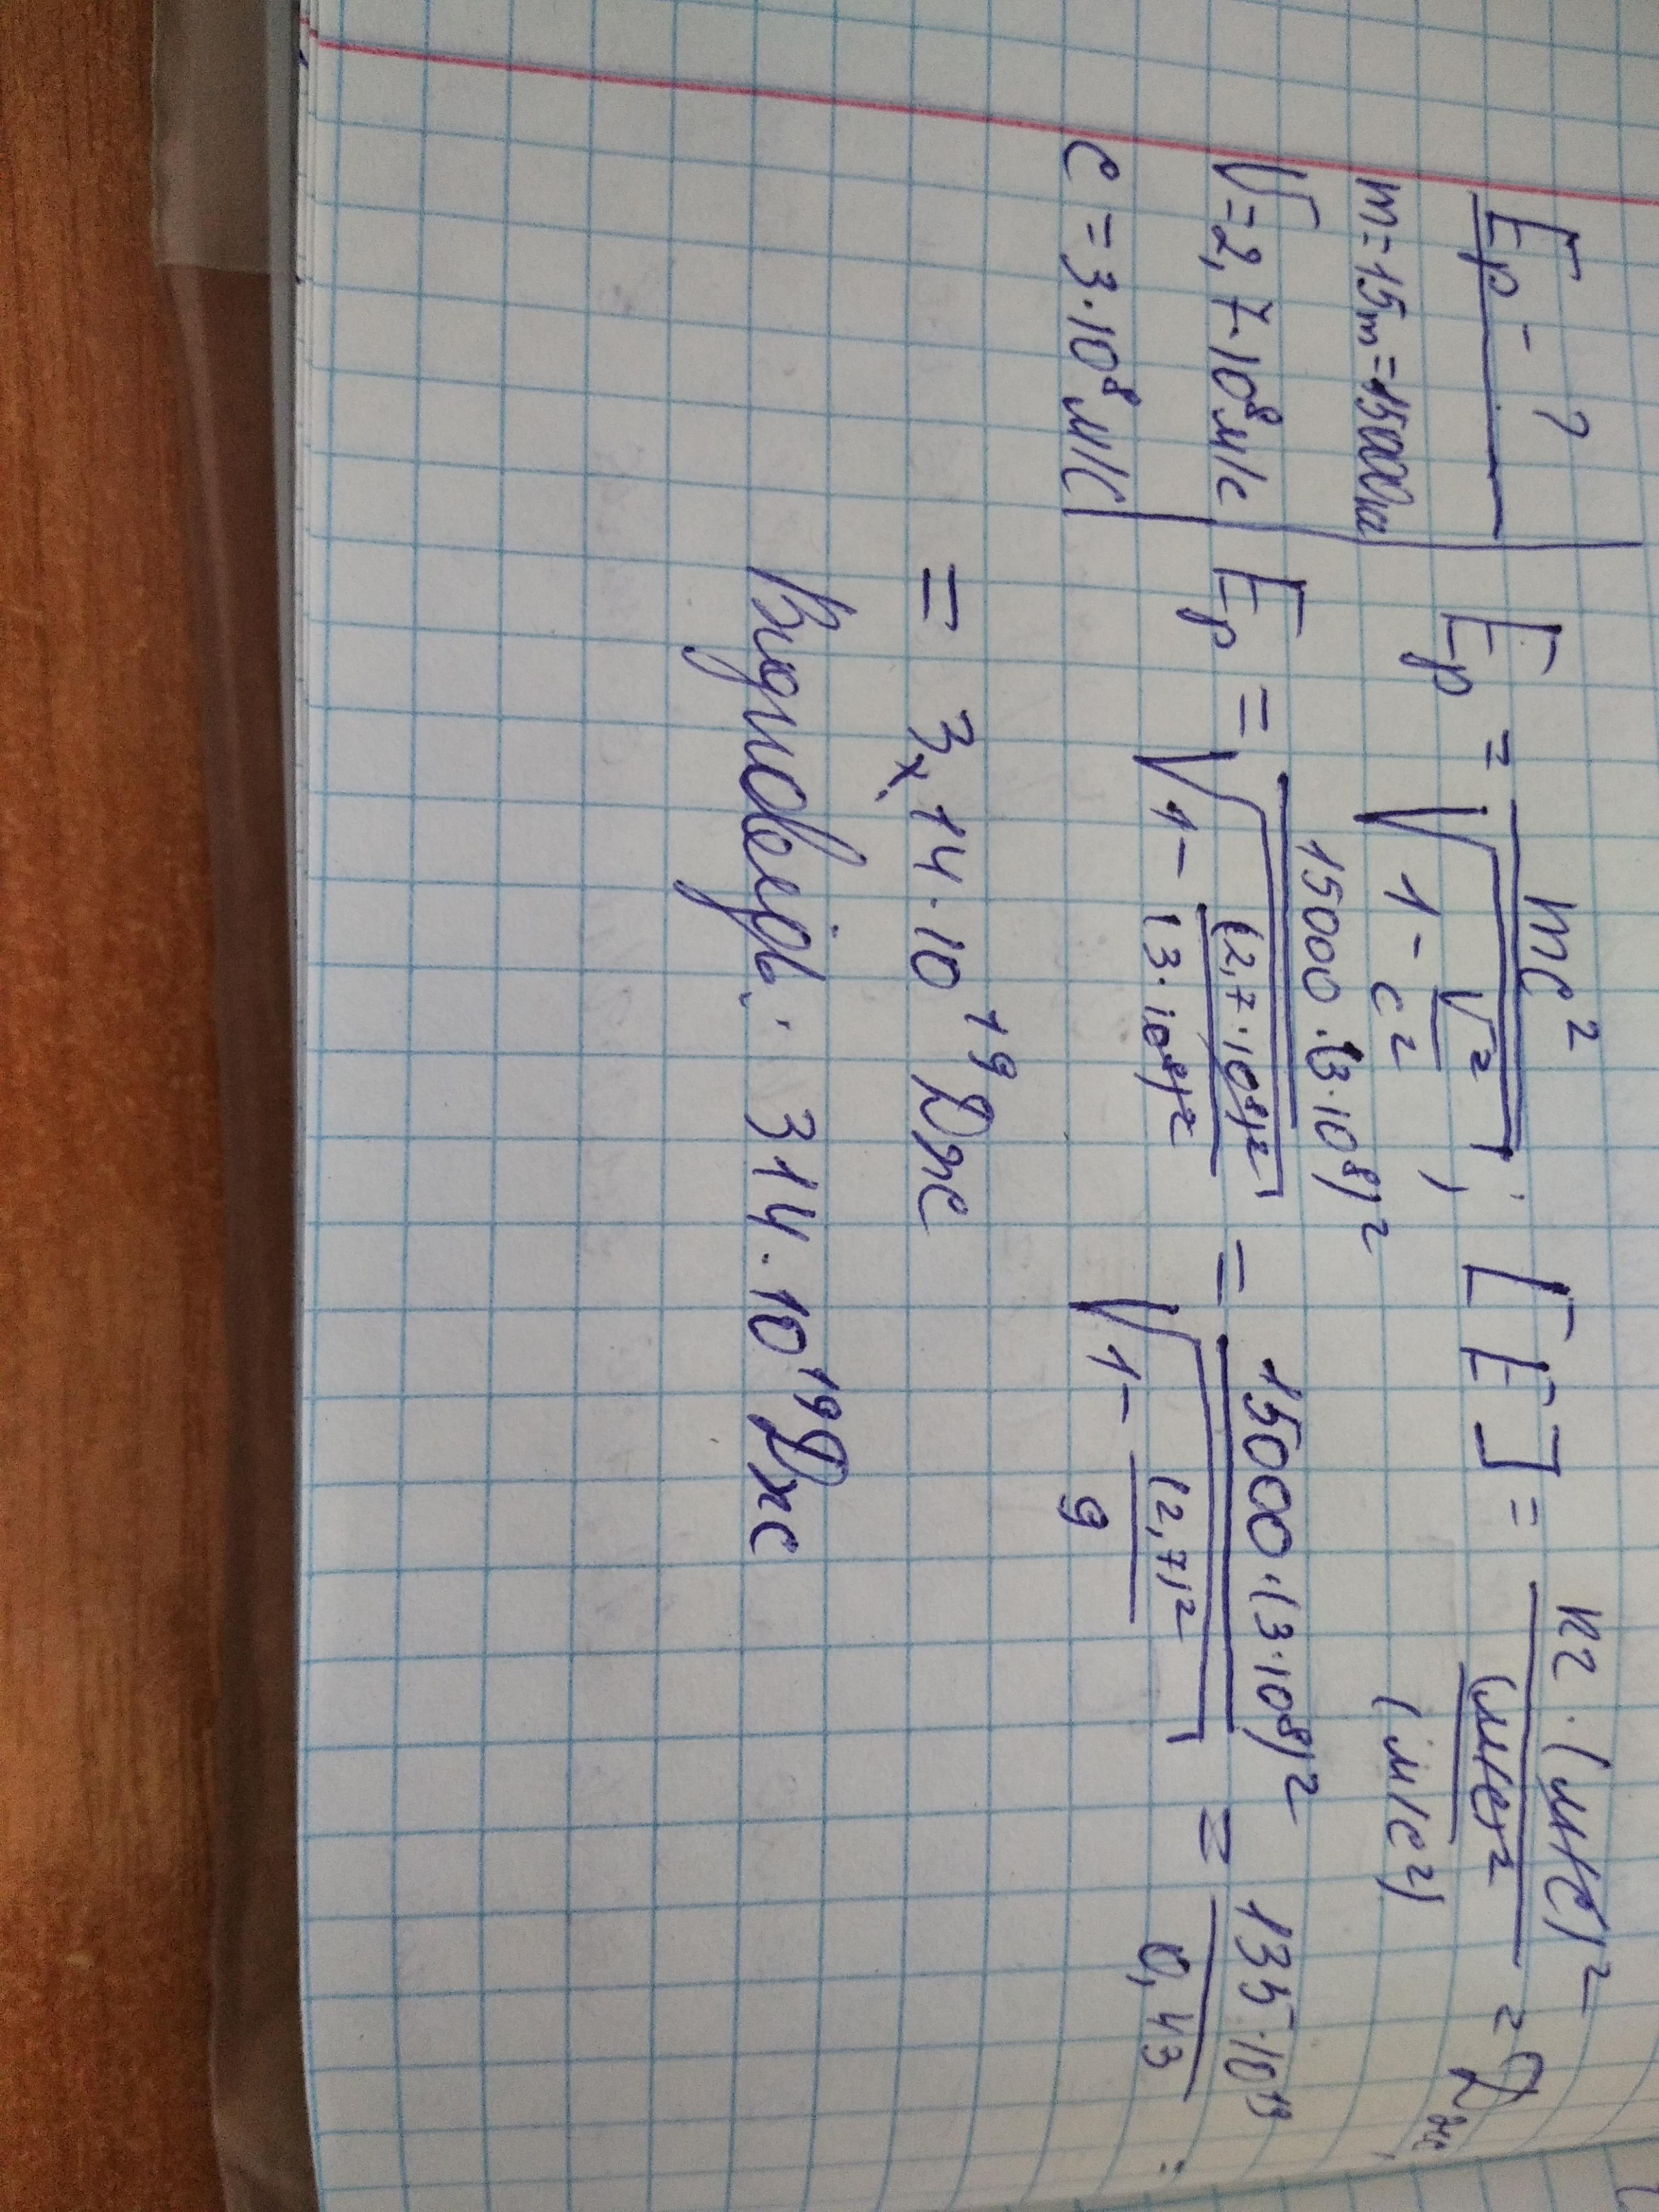 Eр - ?
m = 15т = 15000кг
V = 2,7·10⁸ м/с
c = 3·10⁸ м/с
Eр = mc² / √(1 - V²/c²) ; [E] = кг·(м/с)² / √((м/с)²/(м/с²)) = Дж
Eр = 15000·(3·10⁸)² / √(1 - (2,7·10⁸)²/(3·10⁸)²) = 15000·(3·10⁸)² / √(1 - (2,7)²/9) = 135·10¹⁹ / 0,43
= 3,14·10¹⁹ Дж
Відповідь: 314·10¹⁹ Дж